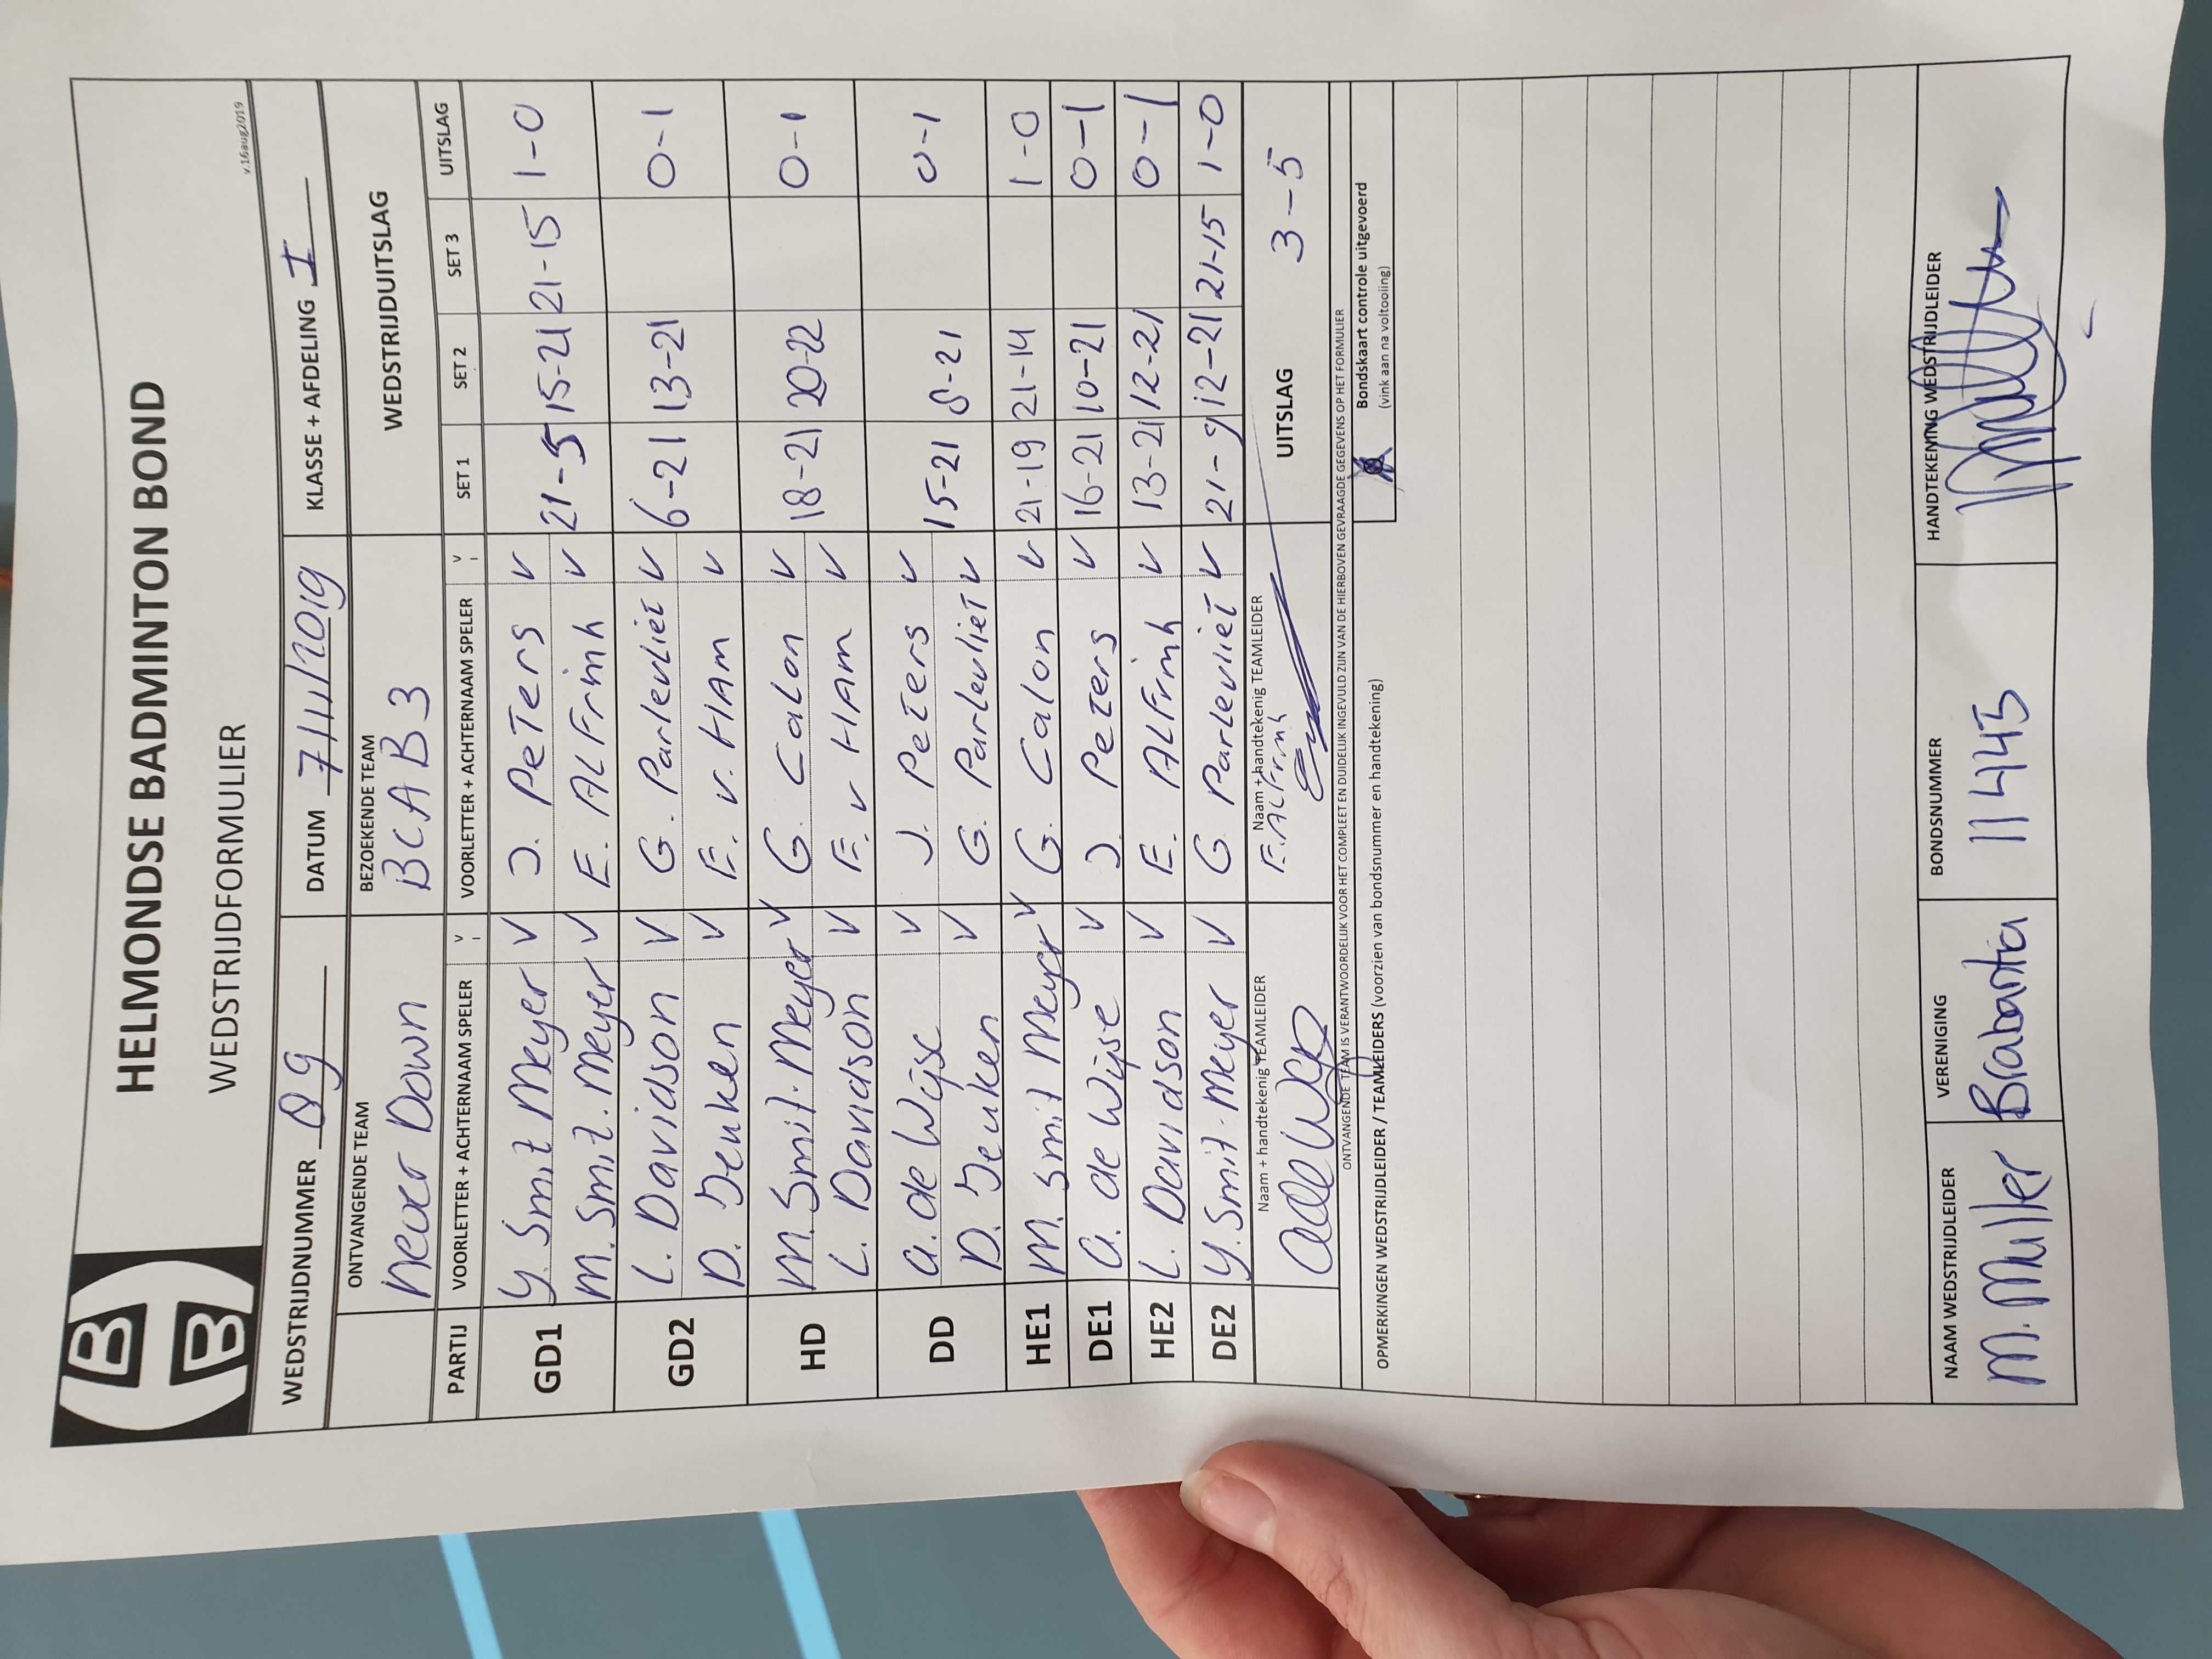 HELMONDSE BADMINTON BOND
WEDSTRIJDFORMULIER
v.16aug2019
WEDSTRIJDNUMMER 89 DATUM 7/11/2019 KLASSE + AFDELING I
ONTVANGENDE TEAM BEZOEKENDE TEAM WEDSTRIJDUITSLAG
Never Down BCAB 3
PARTIJ VOORLETTER + ACHTERNAAM SPELER V VOORLETTER + ACHTERNAAM SPELER V SET 1 SET 2 SET 3 UITSLAG
GD1 Y. Smit Meyer V J. Peters V 21-5 15-21 21-15 1-0
M. Smit. Meyer V E. ALFrink V
GD2 L. Davidson V G. Parlevliet V 6-21 13-21 0-1
D. Jenken V E. v. HAm V
HD M. Smit. Meyer V G. Calon V 18-21 20-22 0-1
L. Davidson V E. v HAm V
DD A. de Wijse V J. Peters V 15-21 8-21 0-1
D. Jenken V G. Parlevliet V
HE1 M. Smit Meyer V G. Calon V 21-19 21-14 1-0
DE1 A. de Wijse V J. Peters V 16-21 10-21 0-1
HE2 L. Davidson V E. ALFrink V 13-21 12-21 0-1
DE2 Y. Smit-Meyer V G. Parlevliet V 21-9 12-21 21-15 1-0
Naam + handtekenig TEAMLEIDER Naam + handtekenig TEAMLEIDER UITSLAG 3-5
E. ALFrink
ONTVANGENDE TEAM IS VERANTWOORDELIJK VOOR HET COMPLEET EN DUIDELIJK INGEVULD ZIJN VAN DE HIERBOVEN GEVRAAGDE GEGEVENS OP HET FORMULIER
Bondskaart controle uitgevoerd
(vink aan na voltooiing)
OPMERKINGEN WEDSTRIJDLEIDER / TEAMLEIDERS (voorzien van bondsnummer en handtekening)
NAAM WEDSTRIJDLEIDER VERENIGING BONDSNUMMER HANDTEKENING WEDSTRIJDLEIDER
M. Muller Brabantia 11445